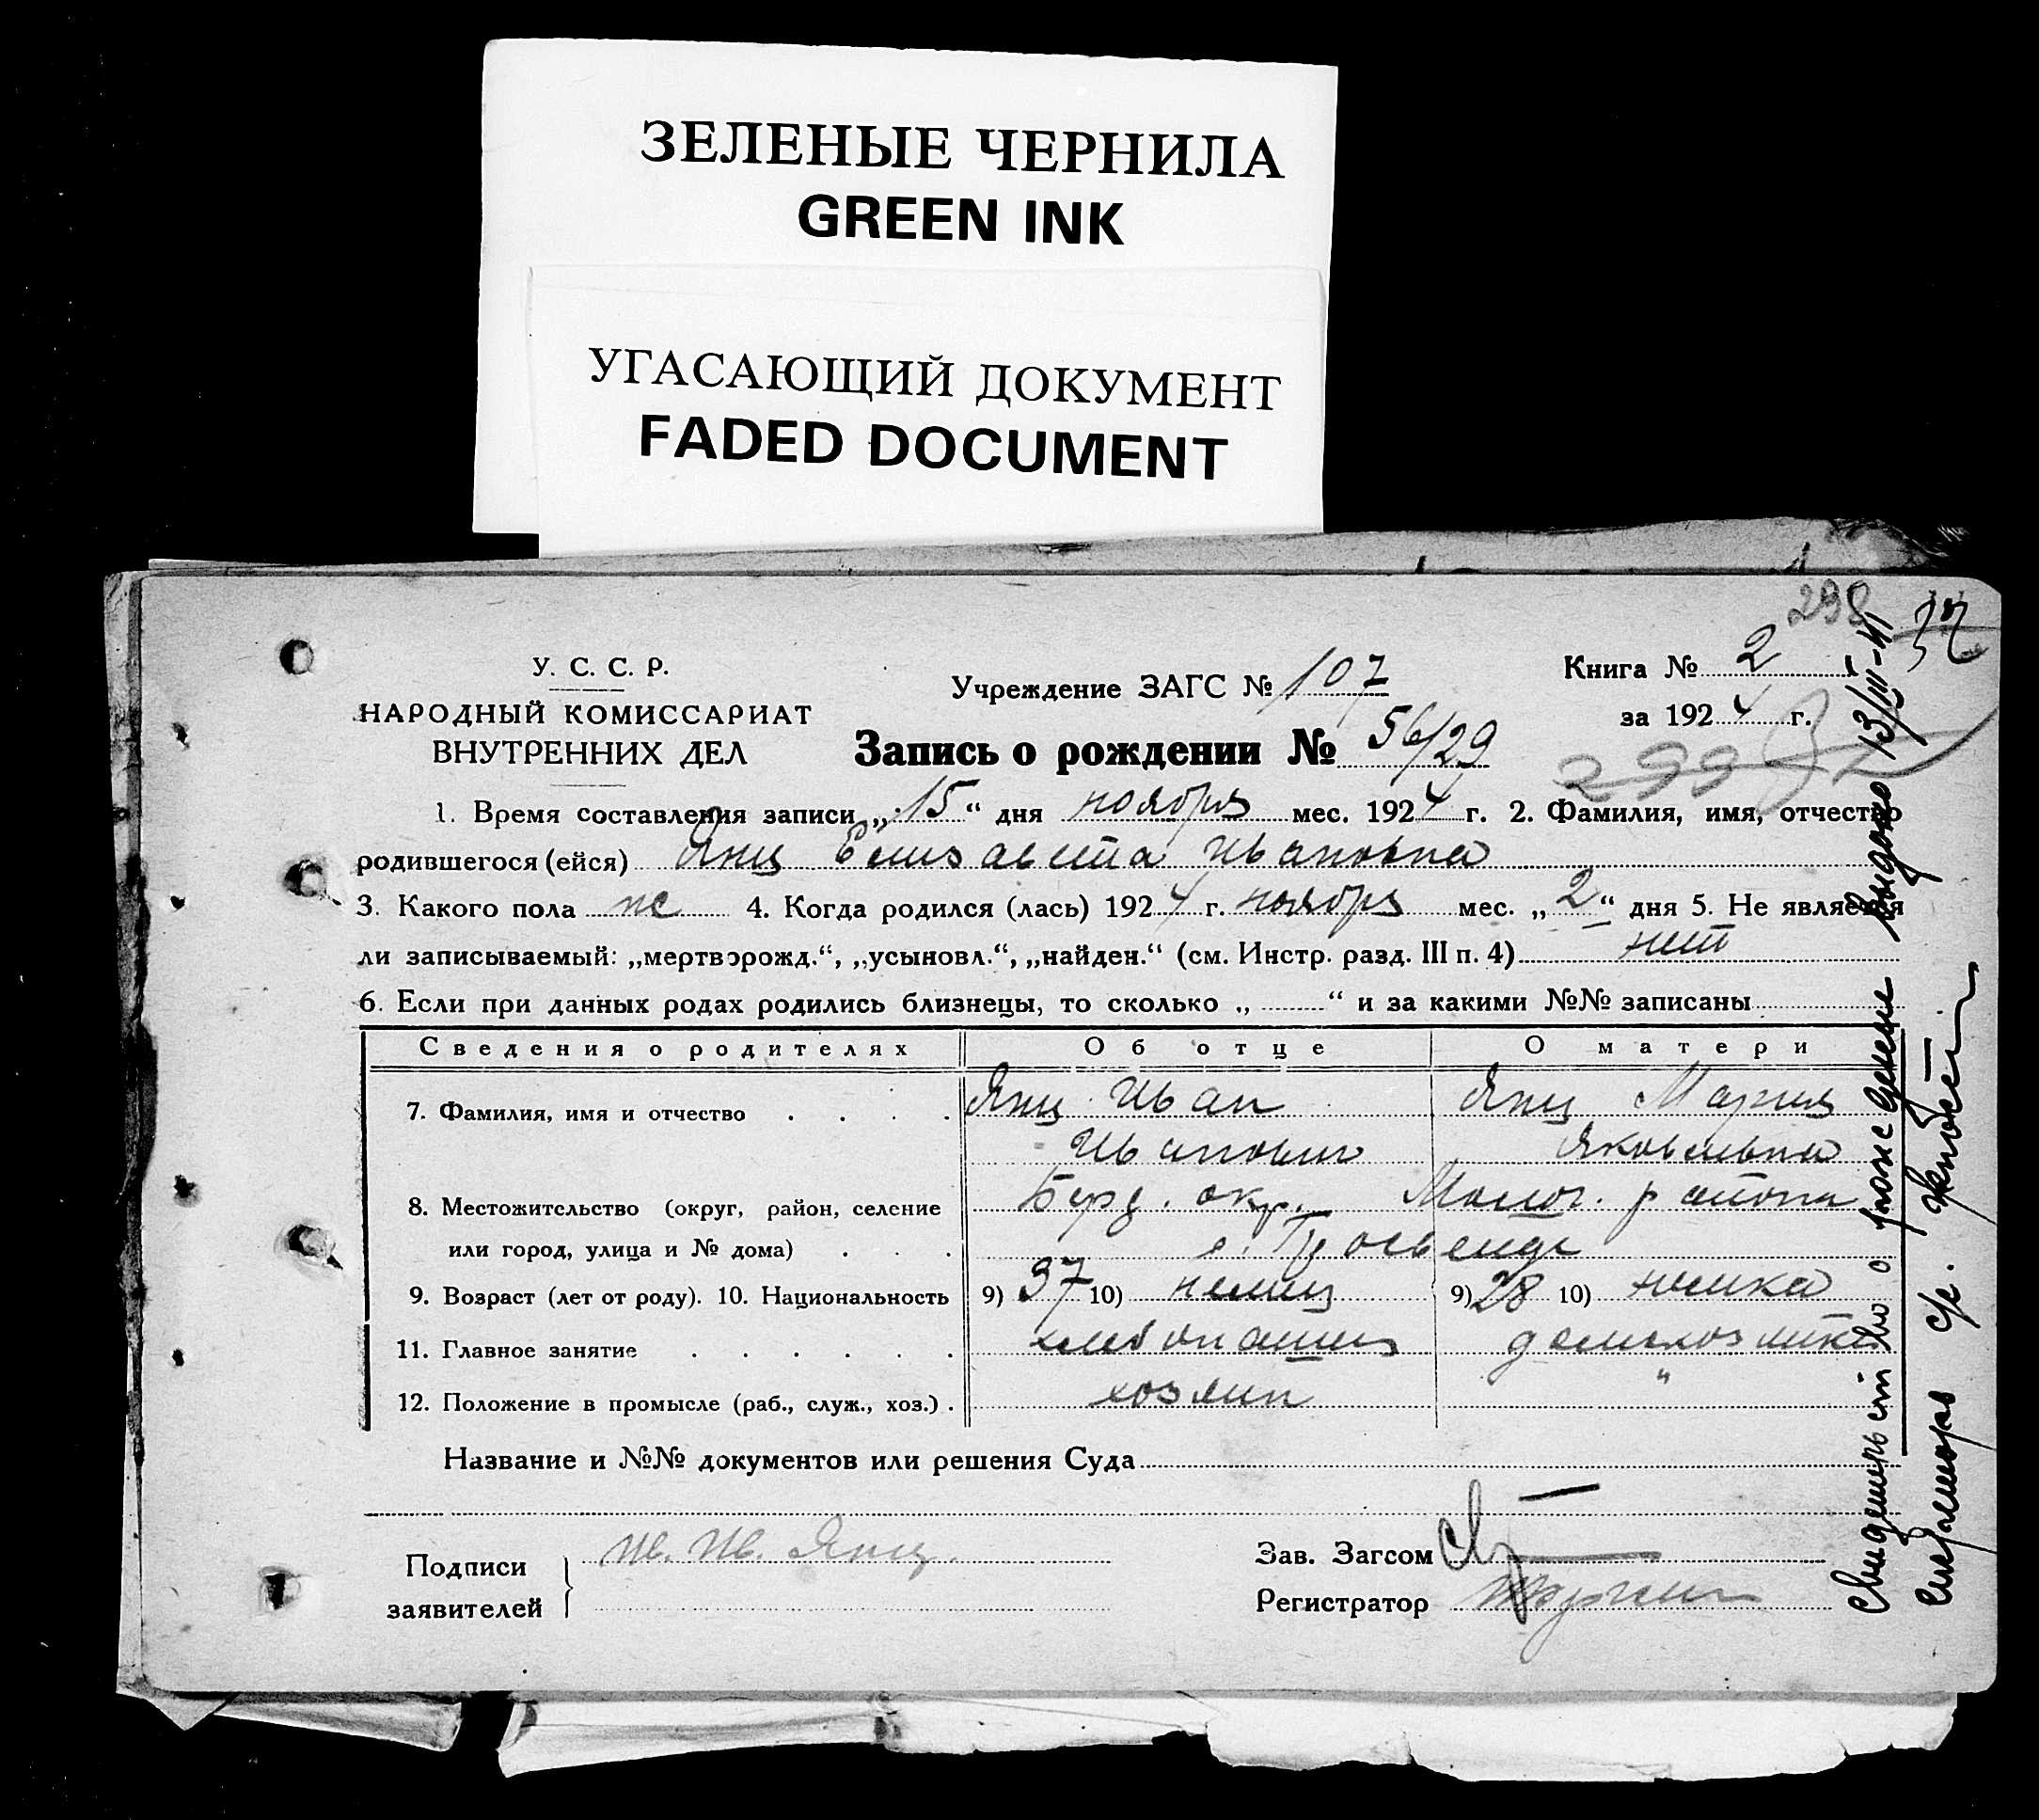 ЗЕЛЕНЫЕ ЧЕРНИЛА
GREEN INK
УГАСАЮЩИЙ ДОКУМЕНТ
FADED DOCUMENT
298
37
У. С. С. Р.
НАРОДНЫЙ КОМИССАРИАТ
ВНУТРЕННИХ ДЕЛ
Учреждение ЗАГС № 107
Книга № 2
за 1924 г.
Запись о рождении № 56/29
299
1. Время составления записи „15“ дня ноября мес. 1924 г. 2. Фамилия, имя, отчество
родившегося (ейся) Янц Елизавета Ивановна
3. Какого пола ж 4. Когда родился (лась) 1924 г. ноября мес. „2“ дня 5. Не является
ли записываемый: „мертворожд.“, „усыновл.“, „найден.“ (см. Инстр. разд. III п. 4) нет
6. Если при данных родах родились близнецы, то сколько „ “ и за какими №№ записаны
Сведения о родителях Об отце О матери
7. Фамилия, имя и отчество Янц Иван Янц Мария
Иванович Яковлевна
8. Местожительство (округ, район, селение Берд. окр. Молоч. района
или город, улица и № дома) с.
9. Возраст (лет от роду). 10. Национальность 9) 37 10) немец 9) 28 10) немка
11. Главное занятие хлебопашец домохозяйка
12. Положение в промысле (раб., служ., хоз.) хозяин "
Название и №№ документов или решения Суда
Подписи
заявителей
Ив. Ив. Янц.
Зав. Загсом
Регистратор
Свидетельство о рождении выдано 13/III-41